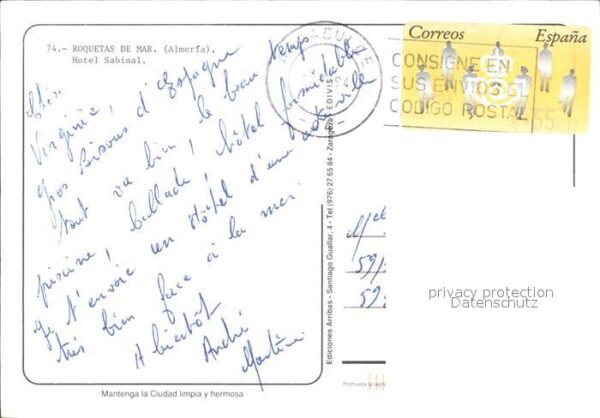 74.- ROQUETAS DE MAR. (Almería).
Hotel Sabinal.
Virginie,
Gros Bisous d'Espagne
tout va bien, le beau temps
piscine, ballade, hôtel formidable
je t'envoie un Hôtel d'une
très bien face à la mer.
A bientôt
André
Mantenga la Ciudad limpia y hermosa
Ediciones Arribas - Santiago Guallar, 4 - Tel (976) 27 65 84 - Zaragoza
Correos España
CONSIGNE EN
SUS ENVIOS EL
CODIGO POSTAL
59
59
privacy protection
Datenschutz